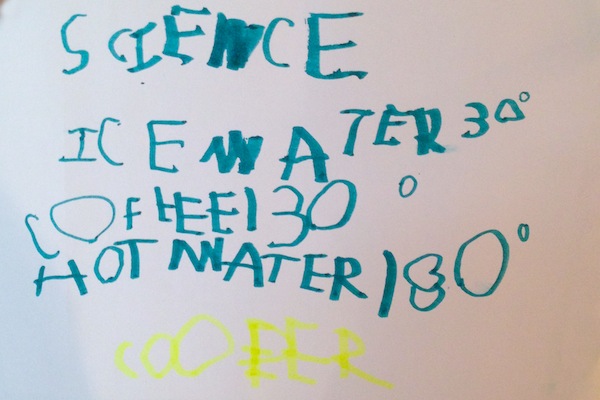 SCIENCE
ICE WATER 30°
COFFEE 130°
HOT WATER 180°
COOPER